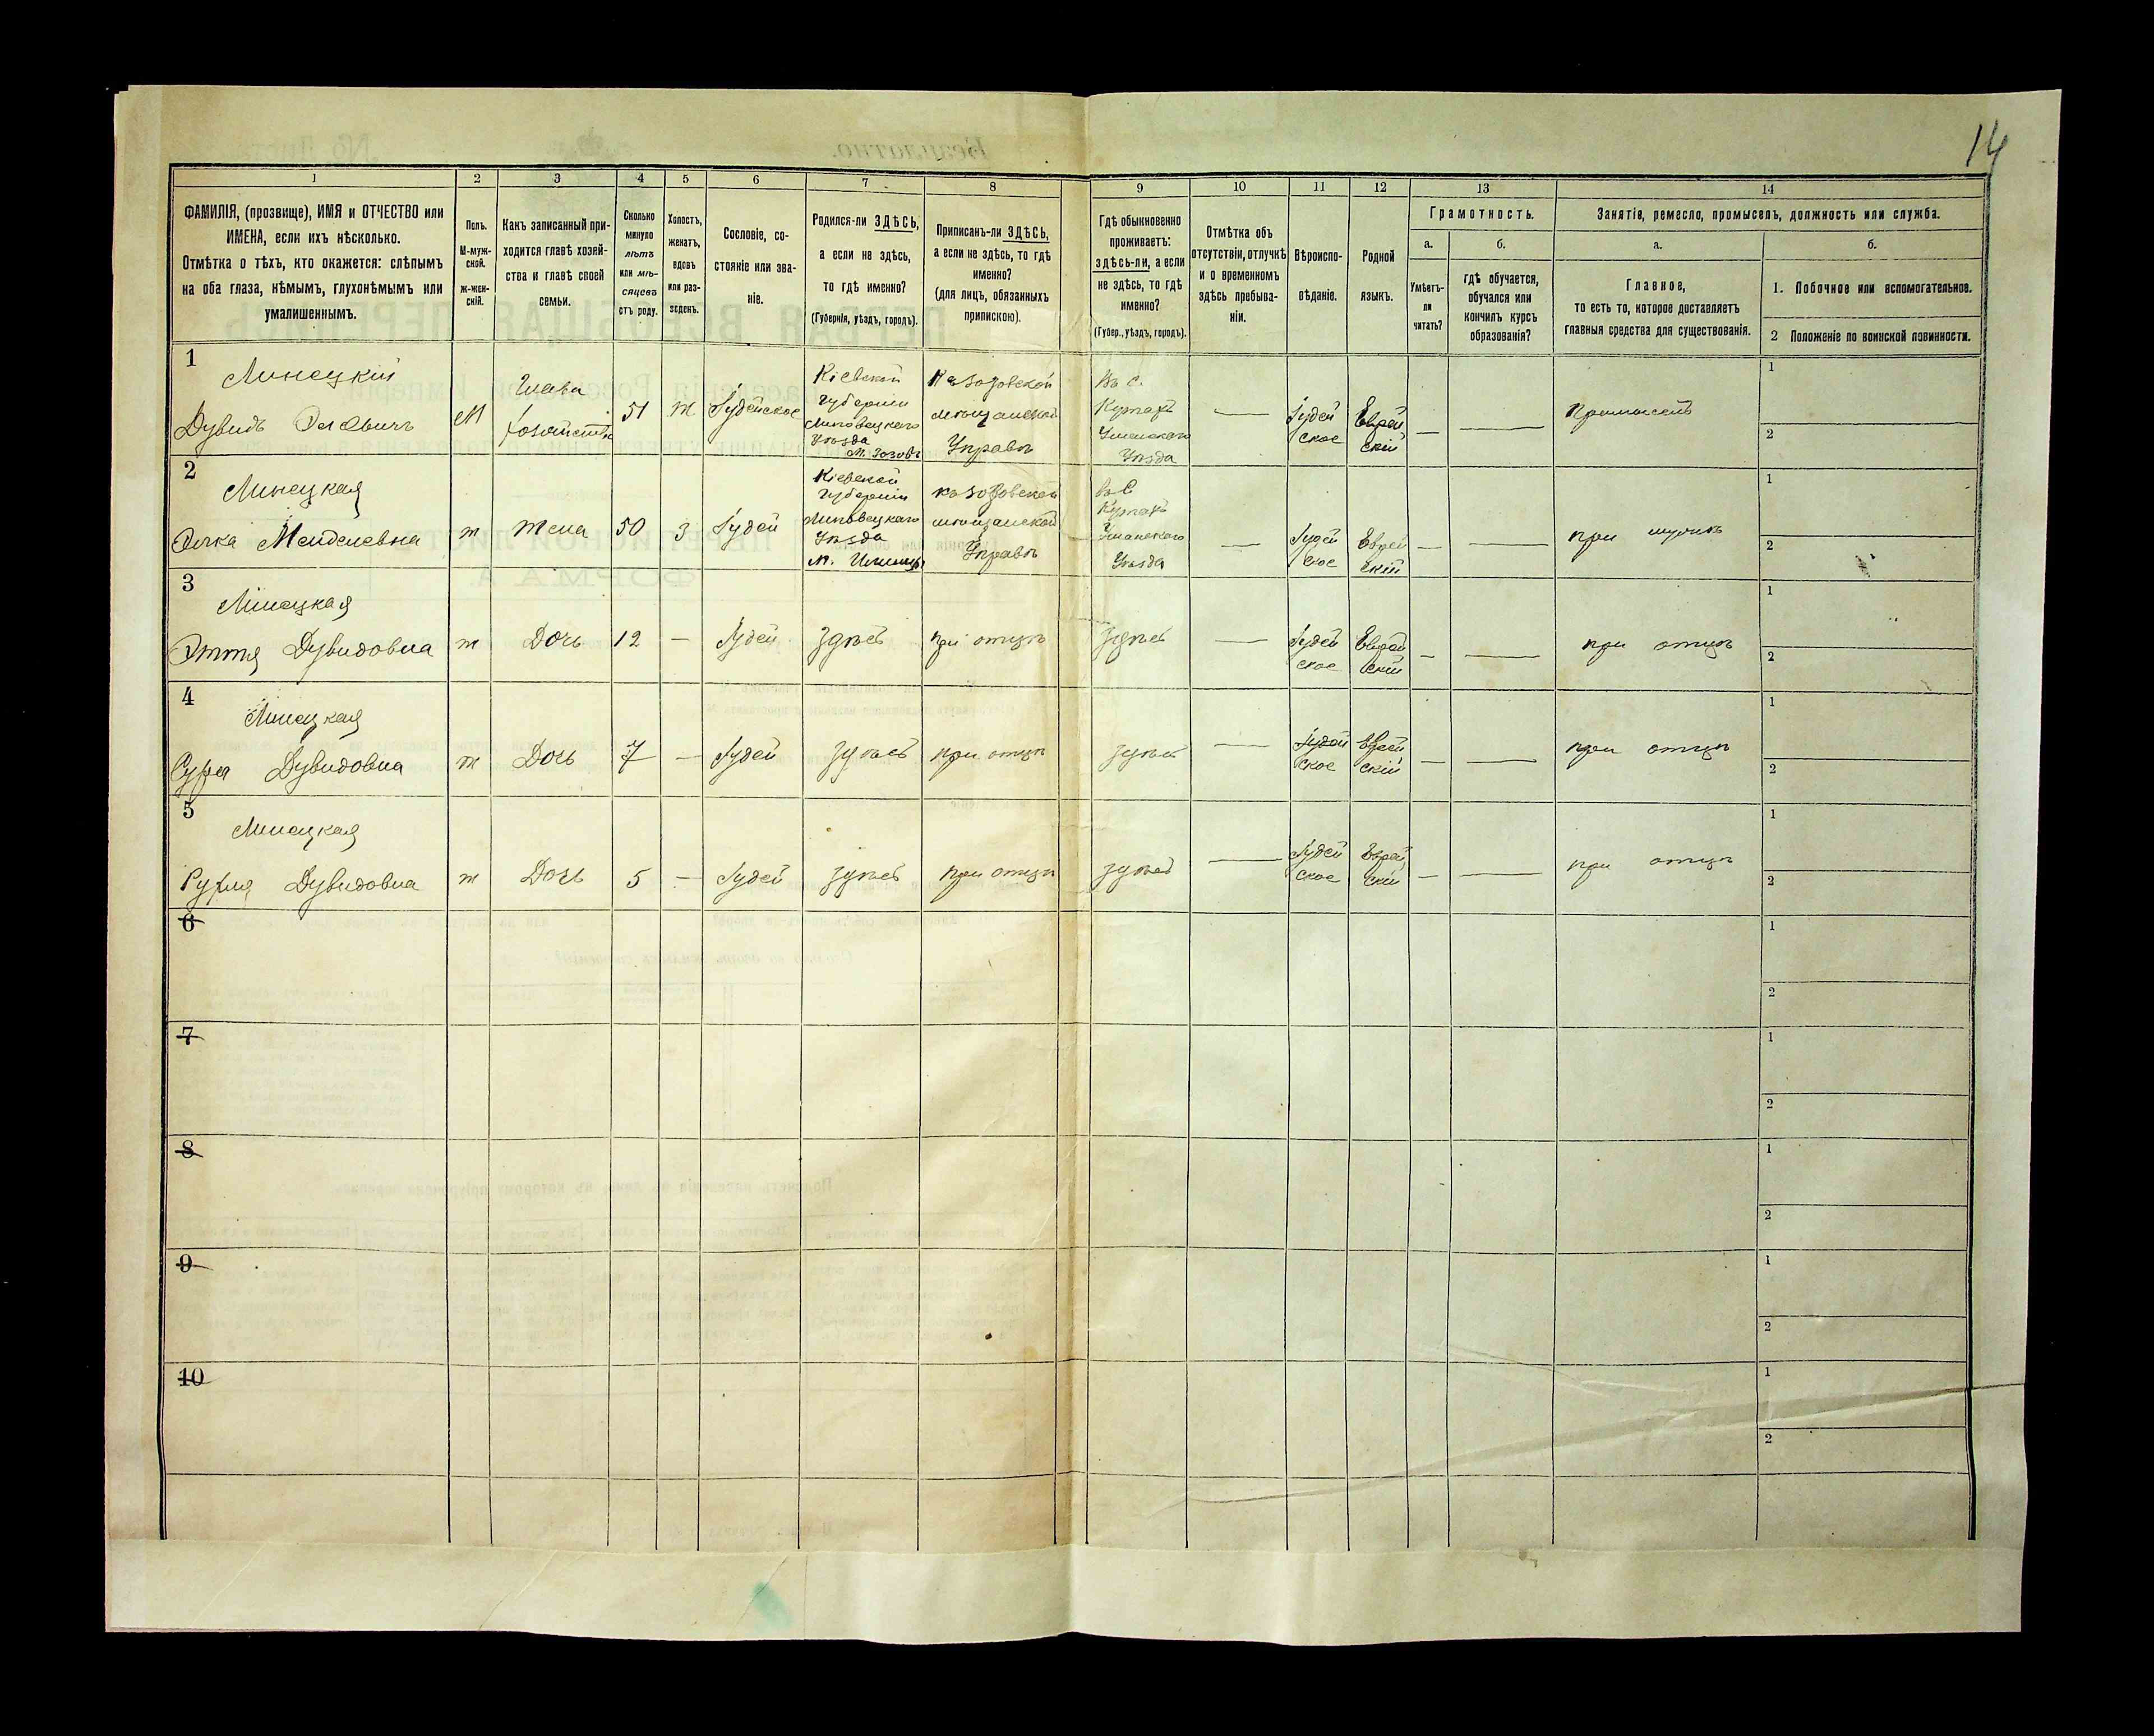 14
1
2
3
4
5
6
7
8
9
10
11
12
13
14
ФАМИЛІЯ, (прозвище), ИМЯ и ОТЧЕСТВО или
ИМЕНА, если ихъ нѣсколько.
Отмѣтка о тѣхъ, кто окажется: слѣпымъ
на оба глаза, нѣмымъ, глухонѣмымъ или
умалишеннымъ.
Полъ.
М-муж-
ской.
ж-жен-
скій.
Какъ записанный при-
ходится главѣ хозяй-
ства и главѣ своей
семьи.
Сколько
минуло
лѣтъ
или мѣ-
сяцевъ
отъ роду.
Холостъ,
женатъ,
вдовъ
или раз-
веденъ.
Сословіе, со-
стояніе или зва-
ніе.
Родился-ли ЗДѢСЬ,
а если не здѣсь,
то гдѣ именно?
(Губернія, уѣздъ, городъ).
Приписанъ-ли ЗДѢСЬ,
а если не здѣсь, то гдѣ
именно?
(для лицъ, обязанныхъ
припискою).
Гдѣ обыкновенно
проживаетъ:
здѣсь-ли, а если
не здѣсь, то гдѣ
именно?
(Губер., уѣздъ, городъ).
Отмѣтка объ
отсутствіи, отлучкѣ
и о временномъ
здѣсь пребыва-
ніи.
Вѣроиспо-
вѣданіе.
Родной
языкъ.
Грамотность.
а.
б.
Умѣетъ-
ли
читать?
гдѣ обучается,
обучался или
кончилъ курсъ
образованія?
Занятіе, ремесло, промыселъ, должность или служба.
а.
б.
Главное,
то есть то, которое доставляетъ
главныя средства для существованія.
1. Побочное или вспомогательное.
2 Положеніе по воинской повинности.
1
Линецкій
Дувидъ
М
Глава
хозяйства
51
ж
Іудейское
Кіевской
Губерніи
Липовецкаго
Уѣзда
мѣщанской
Управѣ
Въ с.
Уманскаго
Уѣзда
—
Іудей
ское
Еврей
скій
—
—
1
2
2
Линецкая
Менделевна
ж
жена
50
З
Іудей
Кіевской
Губерніи
Липовецкаго
Уѣзда
мѣщанской
Управѣ
Въ С
Уманскаго
Уѣзда
—
Іудей
ское
Еврей
скій
—
—
при мужѣ
1
2
3
Линецкая
Дувидовна
ж
Дочь
12
—
Іудей
здѣсь
при отцѣ
здѣсь
—
Іудей
ское
Еврей
скій
—
—
при отцѣ
1
2
4
Линецкая
Сура Дувидовна
ж
Дочь
7
—
Іудей
здѣсь
при отцѣ
здѣсь
—
Іудей
ское
Еврей
скій
—
—
при отцѣ
1
2
5
Линецкая
Дувидовна
ж
Дочь
5
—
Іудей
здѣсь
при отцѣ
здѣсь
—
Іудей
ское
Еврей
скій
—
—
при отцѣ
1
2
6
1
2
7
1
2
8
1
2
9
1
2
10
1
2